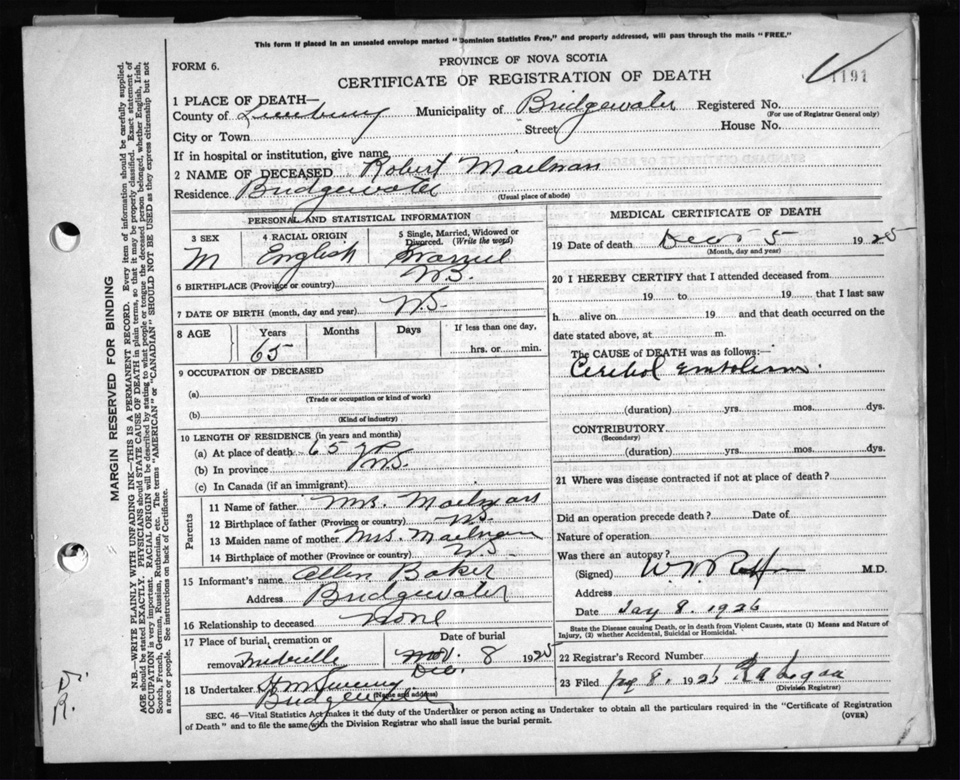 This form if placed in an unsealed envelope marked "Dominion Statistics Free," and properly addressed, will pass through the mails "FREE."
FORM 6.
PROVINCE OF NOVA SCOTIA
CERTIFICATE OF REGISTRATION OF DEATH
1191
1 PLACE OF DEATH—
County of Lunenburg Municipality of Bridgewater Registered No.
(For use of Registrar General only)
City or Town Street House No.
If in hospital or institution, give name
2 NAME OF DECEASED Robert Mailman
Residence Bridgewater (Usual place of abode)
PERSONAL AND STATISTICAL INFORMATION
3 SEX 4 RACIAL ORIGIN 5 Single, Married, Widowed or Divorced. (Write the word)
M English Married
6 BIRTHPLACE (Province or country) N.S.
7 DATE OF BIRTH (month, day and year) N.S.
8 AGE Years Months Days If less than one day,
65 hrs. or min.
9 OCCUPATION OF DECEASED
(a)
(Trade or occupation or kind of work)
(b)
(Kind of industry)
10 LENGTH OF RESIDENCE (in years and months)
(a) At place of death 65 yr
(b) In province N.S.
(c) In Canada (if an immigrant)
Parents
11 Name of father Mr. Mailman
12 Birthplace of father (Province or country) N.S.
13 Maiden name of mother Mrs. Mailman
14 Birthplace of mother (Province or country) N.S.
15 Informant's name Allen Baker
Address Bridgewater
16 Relationship to deceased None
17 Place of burial, cremation or removal Date of burial
Nov. 8 1925
Dec.
18 Undertaker
(Name and address)
MEDICAL CERTIFICATE OF DEATH
19 Date of death Dec 5 1925
(Month, day and year)
20 I HEREBY CERTIFY that I attended deceased from
19 to 19 that I last saw
h alive on 19 and that death occurred on the
date stated above, at m.
The CAUSE of DEATH was as follows:—
Cerebol embolism.
(duration) yrs. mos. dys.
CONTRIBUTORY
(Secondary)
(duration) yrs. mos. dys.
21 Where was disease contracted if not at place of death?
Did an operation precede death? Date of
Nature of operation
Was there an autopsy?
(Signed) M.D.
Address
Date Jay 8. 1926
State the Disease causing Death, or in death from Violent Causes, state (1) Means and Nature of Injury, (2) whether Accidental, Suicidal or Homicidal.
22 Registrar's Record Number
23 Filed 8. 1926
(Division Registrar)
SEC. 46—Vital Statistics Act makes it the duty of the Undertaker or person acting as Undertaker to obtain all the particulars required in the "Certificate of Registration
of Death" and to file the same with the Division Registrar who shall issue the burial permit. (OVER)
MARGIN RESERVED FOR BINDING
N.B.—WRITE PLAINLY WITH UNFADING INK—THIS IS A PERMANENT RECORD. Every item of information should be carefully supplied.
AGE should be stated EXACTLY. PHYSICIANS should STATE CAUSE OF DEATH in plain terms, so that it may be properly classified. Exact statement of
OCCUPATION is very important. RACIAL ORIGIN will be described by stating to what people or tongue the deceased person belonged, whether English, Irish,
Scotch, French, German, Russian, Ruthenian, etc. The terms "AMERICAN" or "CANADIAN" SHOULD NOT BE USED as they express citizenship but not
a race or people. See instructions on back of Certificate.